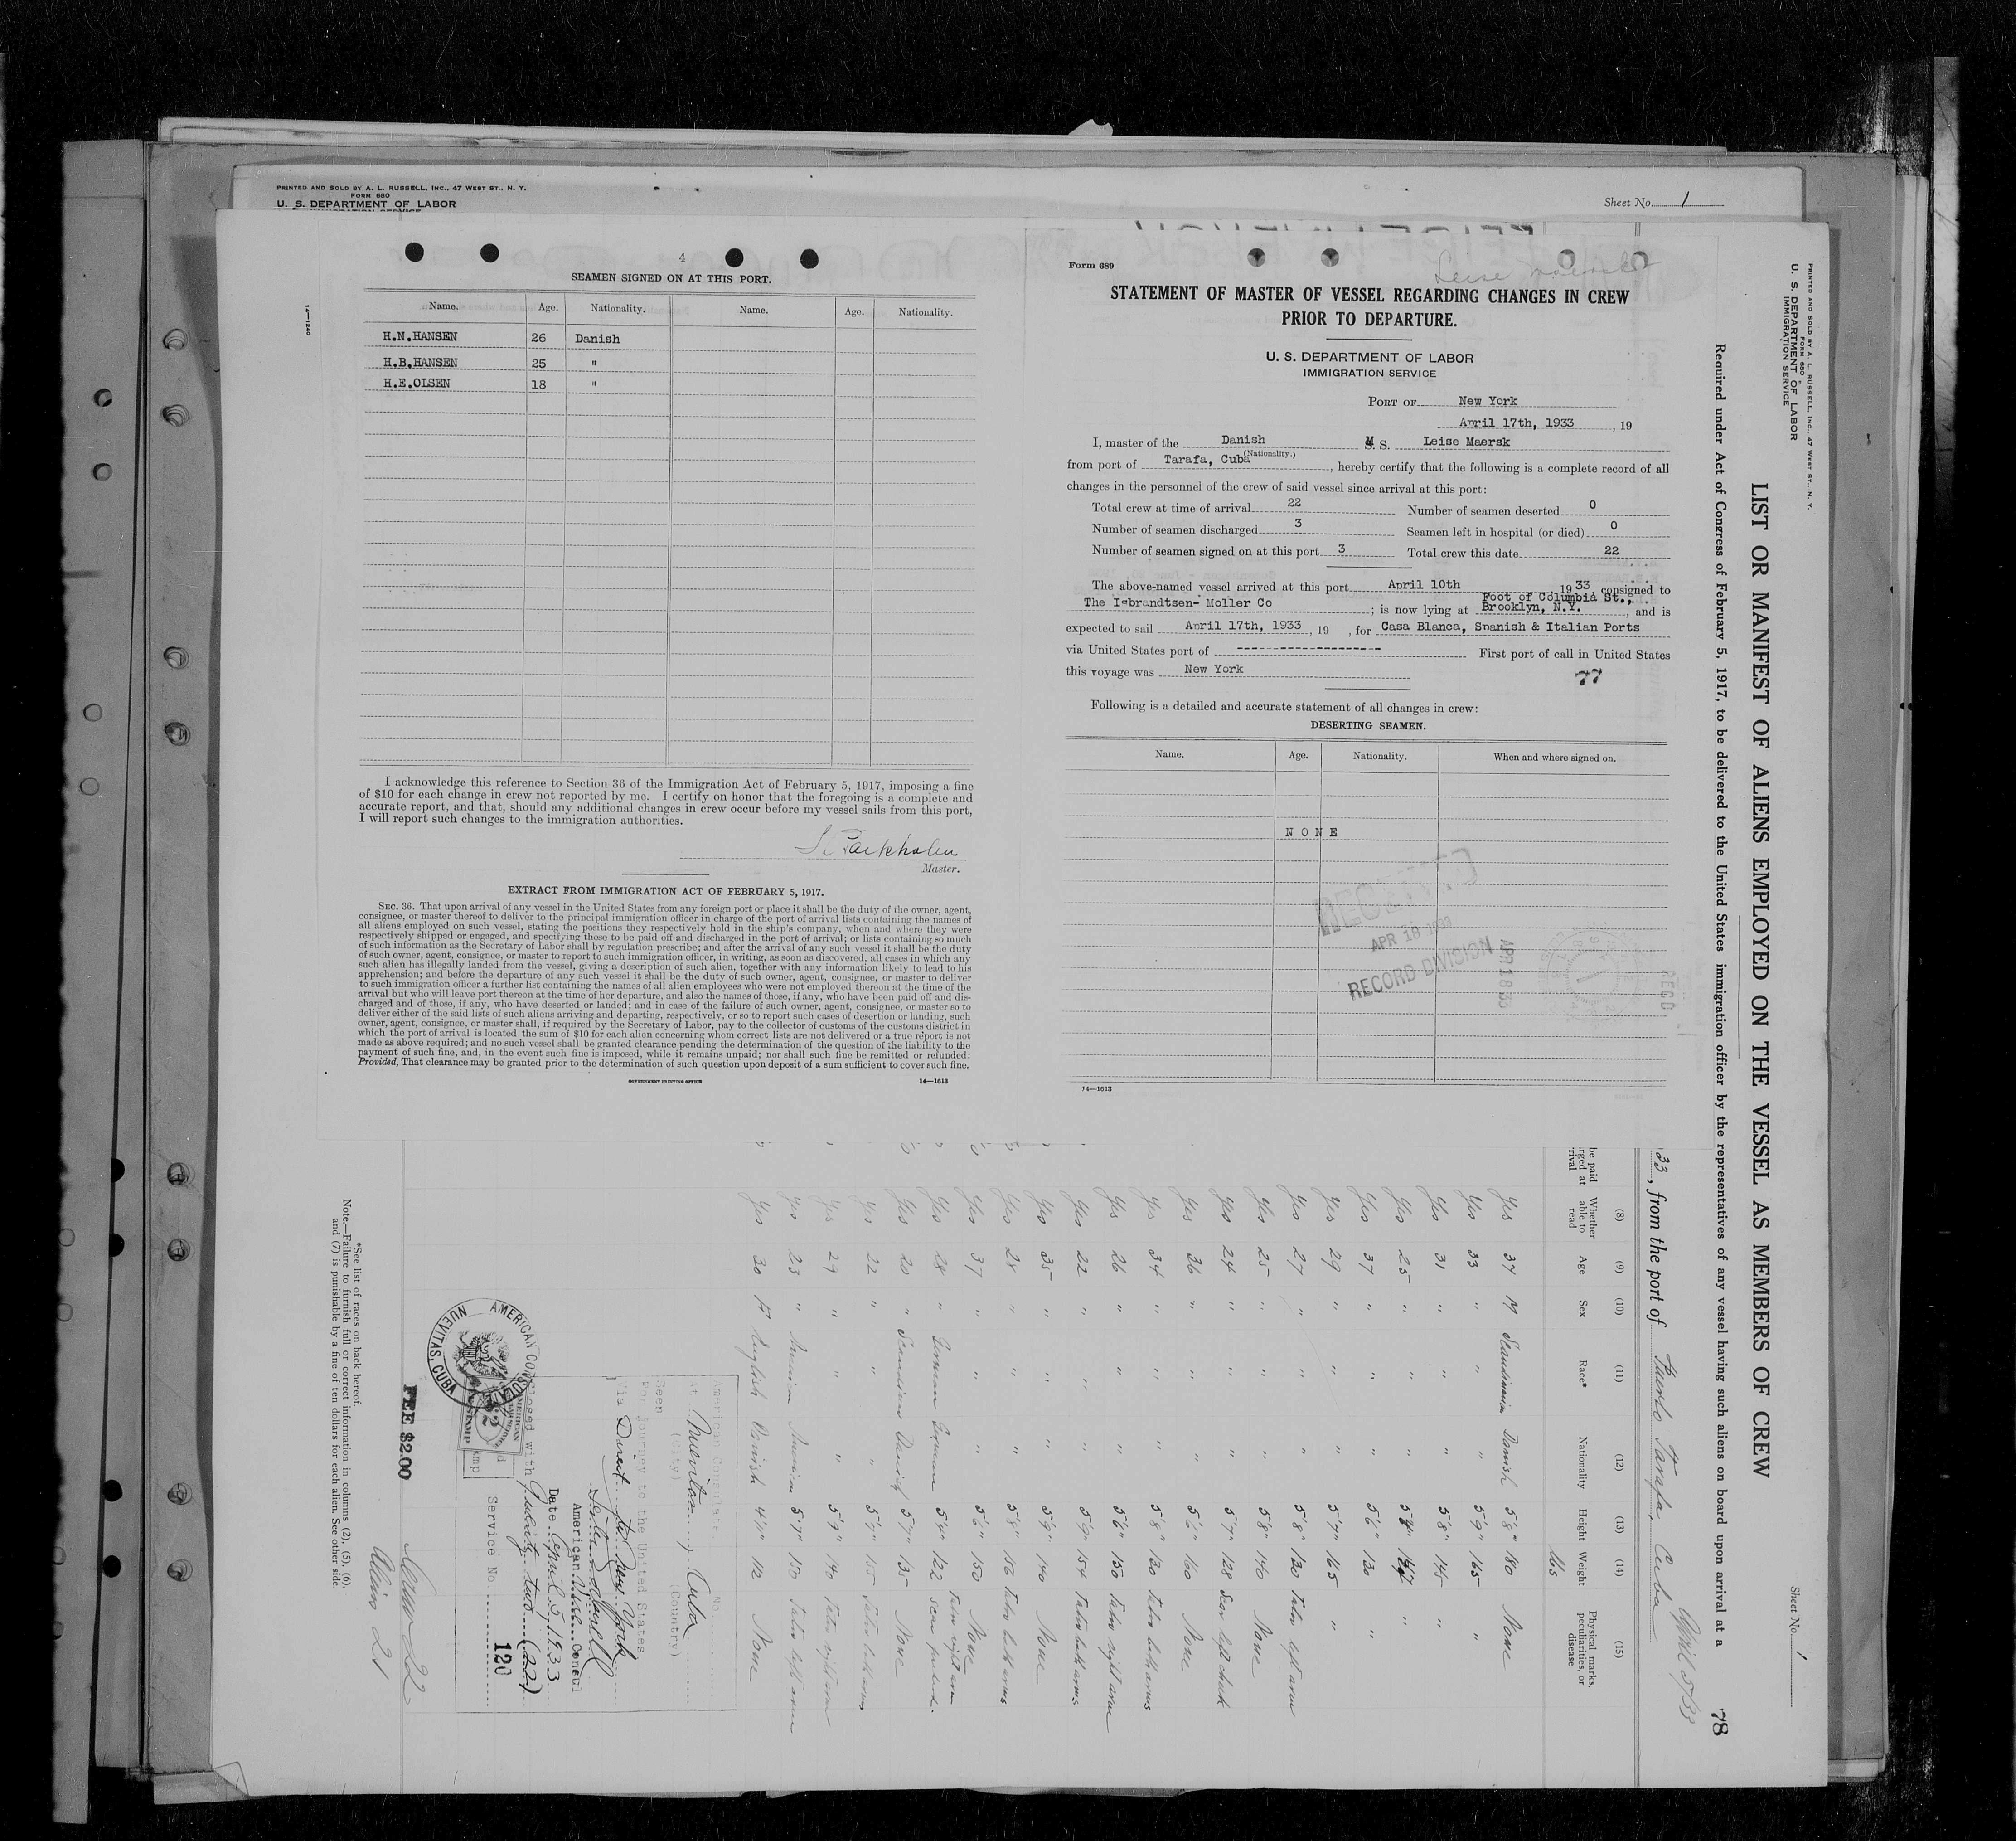 PRINTED AND SOLD BY A. L. RUSSELL, INC., 47 WEST ST., N. Y.
FORM 680
U. S. DEPARTMENT OF LABOR
Sheet No. 1
4
SEAMEN SIGNED ON AT THIS PORT.
Name. Age. Nationality. Name. Age. Nationality.
H.N.HANSEN 26 Danish
H.B.HANSEN 25 "
H.E.OLSEN 18 "
14—1240
I acknowledge this reference to Section 36 of the Immigration Act of February 5, 1917, imposing a fine
of $10 for each change in crew not reported by me. I certify on honor that the foregoing is a complete and
accurate report, and that, should any additional changes in crew occur before my vessel sails from this port,
I will report such changes to the immigration authorities.
Master.
EXTRACT FROM IMMIGRATION ACT OF FEBRUARY 5, 1917.
SEC. 36. That upon arrival of any vessel in the United States from any foreign port or place it shall be the duty of the owner, agent,
consignee, or master thereof to deliver to the principal immigration officer in charge of the port of arrival lists containing the names of
all aliens employed on such vessel, stating the positions they respectively hold in the ship's company, when and where they were
respectively shipped or engaged, and specifying those to be paid off and discharged in the port of arrival; or lists containing so much
of such information as the Secretary of Labor shall by regulation prescribe; and after the arrival of any such vessel it shall be the duty
of such owner, agent, consignee, or master to report to such immigration officer, in writing, as soon as discovered, all cases in which any
such alien has illegally landed from the vessel, giving a description of such alien, together with any information likely to lead to his
apprehension; and before the departure of any such vessel it shall be the duty of such owner, agent, consignee, or master to deliver
to such immigration officer a further list containing the names of all alien employees who were not employed thereon at the time of the
arrival but who will leave port thereon at the time of her departure, and also the names of those, if any, who have been paid off and dis-
charged and of those, if any, who have deserted or landed; and in case of the failure of such owner, agent, consignee, or master so to
deliver either of the said lists of such aliens arriving and departing, respectively, or so to report such cases of desertion or landing, such
owner, agent, consignee, or master shall, if required by the Secretary of Labor, pay to the collector of customs of the customs district in
which the port of arrival is located the sum of $10 for each alien concerning whom correct lists are not delivered or a true report is not
made as above required; and no such vessel shall be granted clearance pending the determination of the question of the liability to the
payment of such fine, and, in the event such fine is imposed, while it remains unpaid; nor shall such fine be remitted or refunded:
Provided, That clearance may be granted prior to the determination of such question upon deposit of a sum sufficient to cover such fine.
GOVERNMENT PRINTING OFFICE 14—1613
Form 689
Leise Maersk
STATEMENT OF MASTER OF VESSEL REGARDING CHANGES IN CREW
PRIOR TO DEPARTURE.
U. S. DEPARTMENT OF LABOR
IMMIGRATION SERVICE
PORT OF New York
April 17th, 1933, 19
I, master of the Danish M. S. Leise Maersk
(Nationality.)
from port of Tarafa, Cuba, hereby certify that the following is a complete record of all
changes in the personnel of the crew of said vessel since arrival at this port:
Total crew at time of arrival 22 Number of seamen deserted 0
Number of seamen discharged 3 Seamen left in hospital (or died) 0
Number of seamen signed on at this port 3 Total crew this date 22
The above-named vessel arrived at this port April 10th 1933 consigned to
The Isbrandtsen- Moller Co ; is now lying at Foot of Columbia St., Brooklyn, N.Y. , and is
expected to sail April 17th, 1933, 19 , for Casa Blanca, Spanish & Italian Ports
via United States port of -------------------- First port of call in United States
this voyage was New York
77
Following is a detailed and accurate statement of all changes in crew:
DESERTING SEAMEN.
Name. Age. Nationality. When and where signed on.
NONE
RECEIVED
APR 18 1933
RECORD DIVISION
APR 18 33
RECD
14—1613
PRINTED AND SOLD BY A. L. RUSSELL, INC., 47 WEST ST., N. Y.
FORM 680
U. S. DEPARTMENT OF LABOR
IMMIGRATION SERVICE
Sheet No. 1
LIST OR MANIFEST OF ALIENS EMPLOYED ON THE VESSEL AS MEMBERS OF CREW
Required under Act of Congress of February 5, 1917, to be delivered to the United States immigration officer by the representatives of any vessel having such aliens on board upon arrival at a
78
33, from the port of Puerto Tarafa, Cuba April 5/33
(8) (9) (10) (11) (12) (13) (14) (15)
Whether able to read Age Sex Race* Nationality Height Weight Physical marks, peculiarities, or disease
lbs
Yes 37 M Scandinavian Danish 5'8" 180 None
Yes 33 " " " 5'9" 165 "
Yes 31 " " " 5'8" 145 "
Yes 25 " " "
Yes 37 " " " 5'6" 130 "
Yes 29 " " " 5'7" 165 "
Yes 27 " " " 5'8" 130 Tatoo left arm
Yes 25 " " " 5'8" 140 None
Yes 24 " " " 5'7" 128 Scar left cheek
Yes 36 " " " 5'6" 160 None
Yes 34 " " " 5'8" 130 Tatoo both arms
Yes 26 " " " 5'6" 150 Tatoo right arm
Yes 22 " " " 5'9" 154 Tatoo both arms
Yes 35 " " " 5'9" 140 None
Yes 28 " " " 5'8" 156 Tatoo both arms
Yes 37 " " " 5'6" 150 None
Yes 28 " German German 5'4" 122
Yes 20 " Scandinav Danish 5'7" 135 None
Yes 22 " " " 155 Tatoo both arms
Yes 29 " " " 5'9" 140 Tatoo right arm
Yes 23 " 5'7" 150 Tatoo left arm
Yes 30 F English Danish 112 None
American Consulate No.
at Nuevitas, Cuba
(City) (Country)
Seen
For journey to the United States
via Direct to New York
American Vice Consul
Date April 5, 1933
twenty two (22)
Service No. 120
AMERICAN CONSULATE
NUEVITAS, CUBA
FEE $2.00
Crew 22
Aliens 21
*See list of races on back hereof.
Note.—Failure to furnish full or correct information in columns (2), (5), (6),
and (7) is punishable by a fine of ten dollars for each alien. See other side.